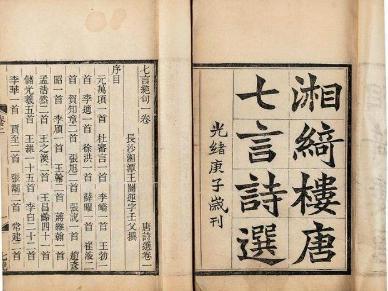 湘綺樓唐
七言詩選
光緒庚子歲刊
七言絕句一卷
唐詩選卷一
長沙湘潭王闓運字壬父撰
序目
元萬頃一首　杜審言一首　李嶠一首　王勃一
首　李適一首　徐洪一首　薛曜一首　崔液二
首　賀知章二首　張旭三首　張說一首　趙彥
昭一首　李頎一首　王翰二首　蔣維翰一首
孟浩然二首　王之渙一首　王昌齡四十一首
儲光羲五首　王維一十五首　李白二十二首
李華一首　賈至二首　張潮一首　常建二首